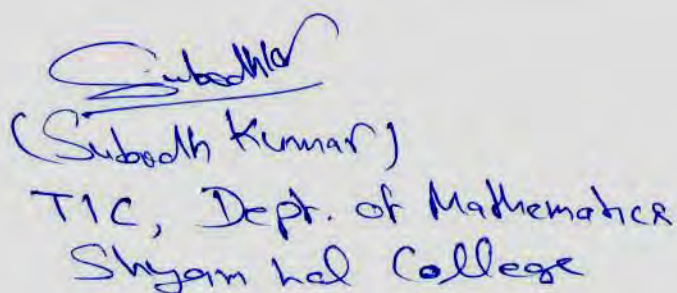 Subodhkr
(Subodh Kumar)
TIC, Dept. of Mathematics
Shyam Lal College